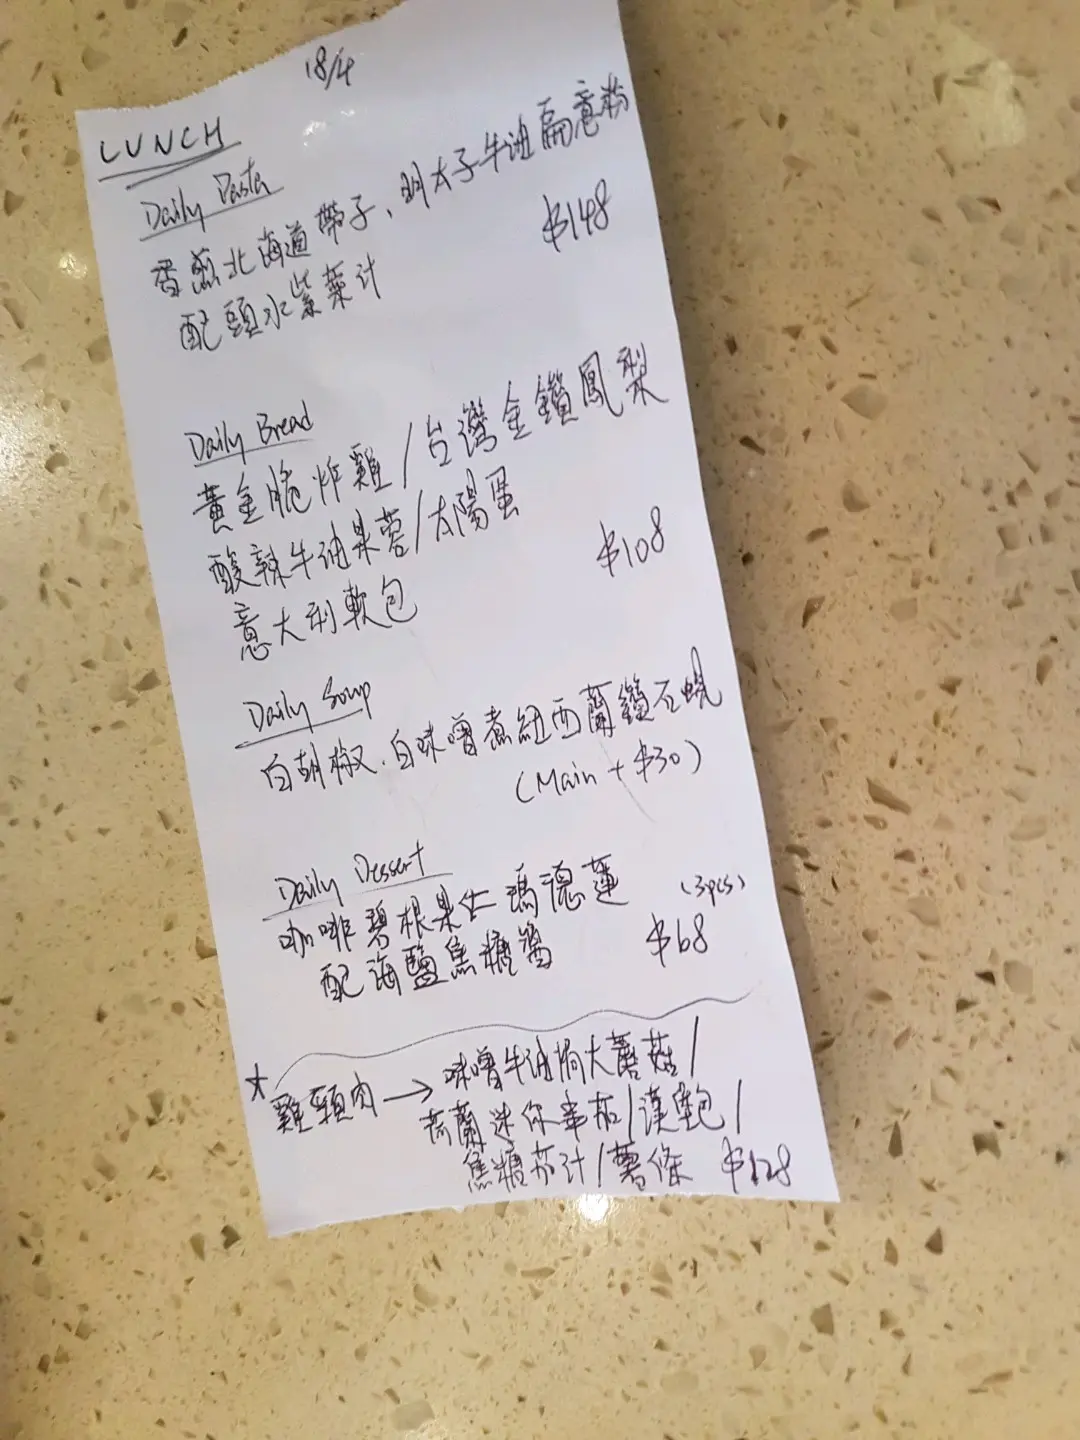 18/4
LUNCH
Daily Pasta
香煎北海道帶子、明太子牛油扁意粉
配頭水紫菜汁
$148
Daily Bread
黃金脆炸雞/台灣金鑽鳳梨
酸辣牛油果蓉/太陽蛋
意大利軟包
$108
Daily Soup
白胡椒.白味噌煮紐西蘭鑽石蜆
(Main + $30)
Daily Dessert
咖啡碧根果仁瑪德蓮 (3pcs)
配海鹽焦糖醬 $68
* 雞頸肉 → 味噌牛油焗大蘑菇/
荷蘭迷你串茄/漢堡包/
焦糖茄汁/薯條 $128